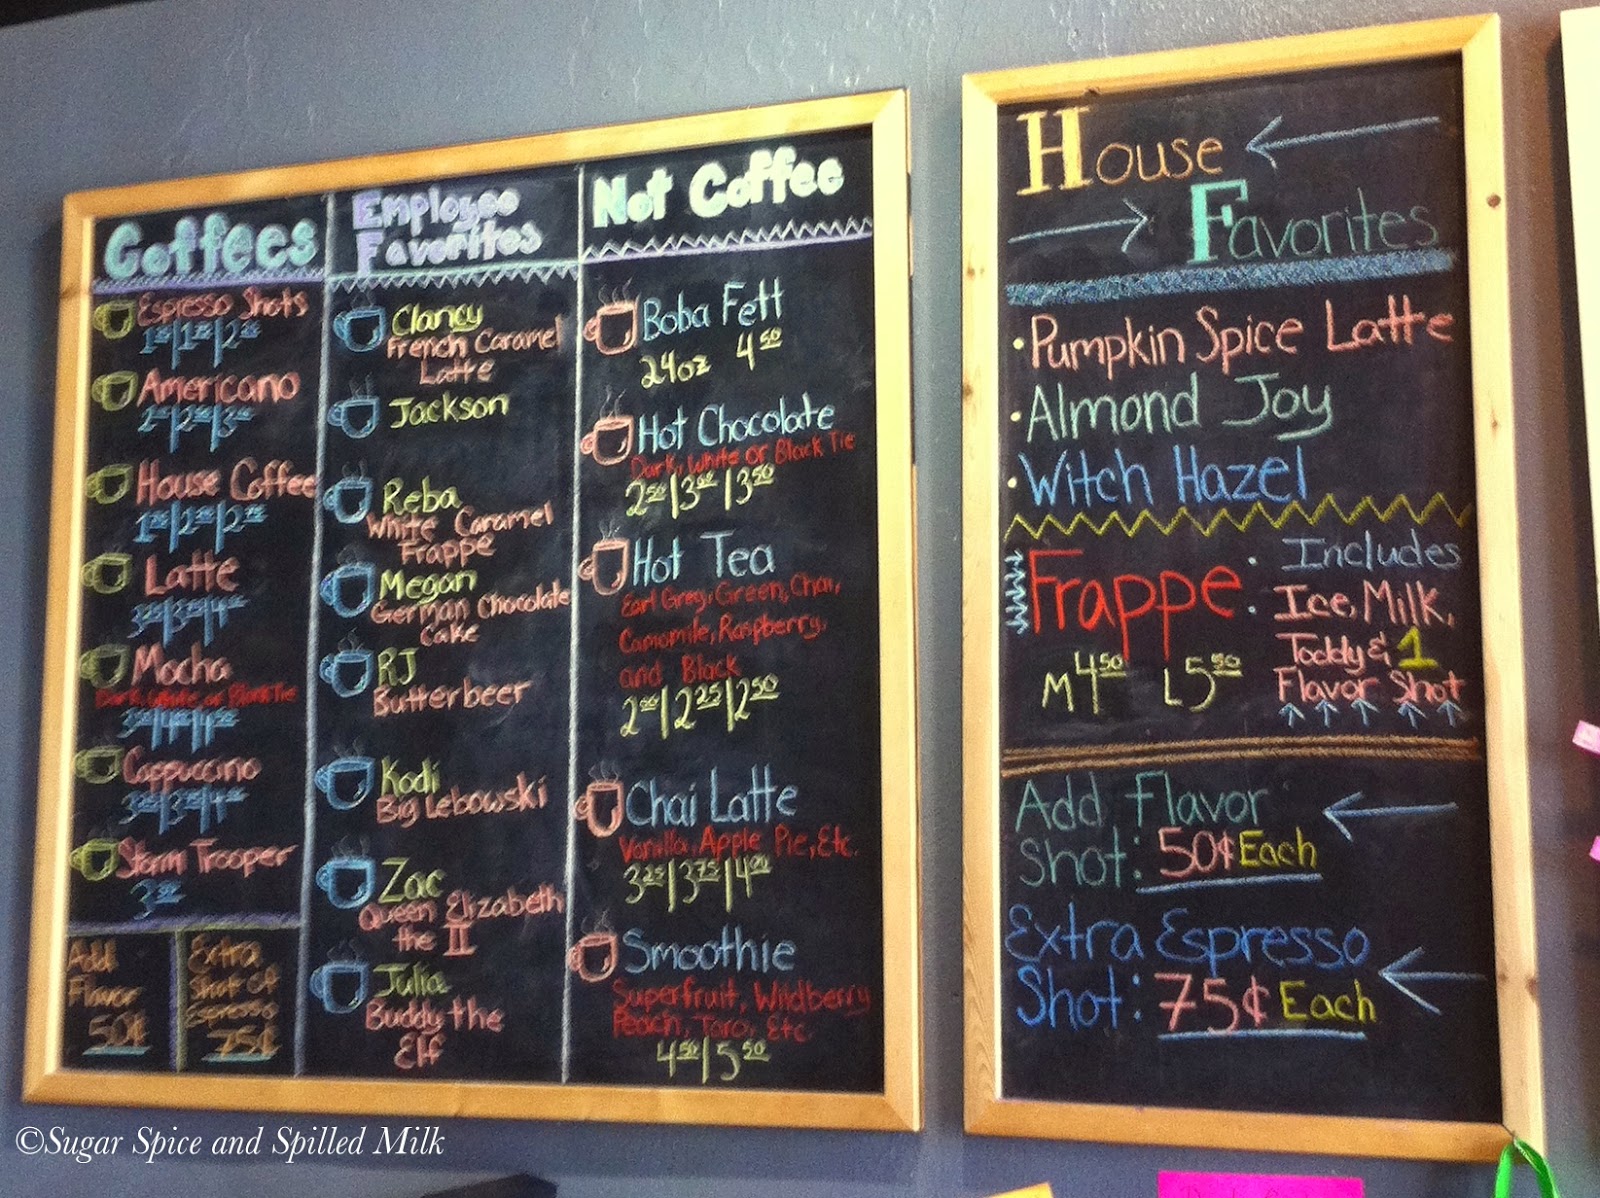 Coffees
Espresso Shots
Americano
House Coffee
Latte
Mocha
Dark, White or Black Tie
Cappuccino
Storm Trooper
Add
Flavor
50¢
Extra
Shot of
Espresso
75¢
Employee
Favorites
Clancy
French Caramel
Latte
Jackson
Reba
White Caramel
Frappe
Megan
German Chocolate
Cake
RJ
Butterbeer
Kodi
Big Lebowski
Zac
Queen Elizabeth
the II
Julia
Buddy the
Elf
Not Coffee
Boba Fett
24oz 4.50
Hot Chocolate
Dark, White or Black Tie
2.50|3.00|3.50
Hot Tea
Earl Grey, Green, Chai,
Camomile, Raspberry,
and Black
2.00|2.25|2.50
Chai Latte
Vanilla, Apple Pie, Etc.
3.25|3.75|4.00
Smoothie
Superfruit, Wildberry
Peach, Taro, Etc
4.50|5.50
House
Favorites
• Pumpkin Spice Latte
• Almond Joy
• Witch Hazel
Frappe: • Includes
Ice, Milk,
Toddy & 1
Flavor Shot
M 4.50 L 5.50
Add Flavor
Shot: 50¢ Each
Extra Espresso
Shot: 75¢ Each
©Sugar Spice and Spilled Milk